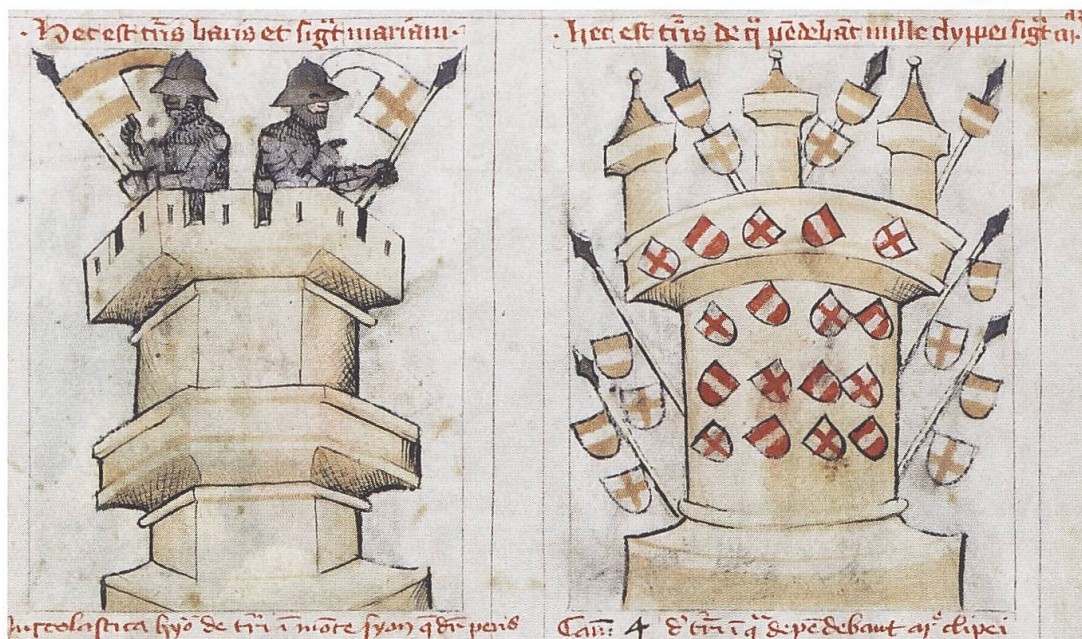 · Hec est tͬris baris et sigͭ mariam ·
· hec est tͬris de q̄ pēdebāt mille clyppei sigͭ
In scolastica hyō de tͬri ī mōte syon q̄ dr̄
Caᷓ: 4 d' tͬri ī q̄ depēdebant clipei